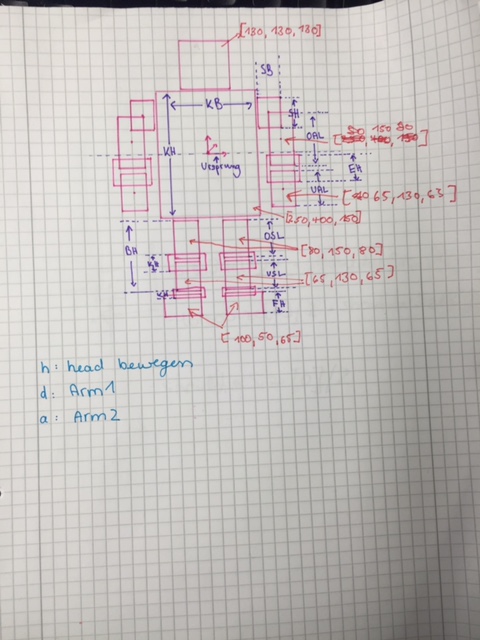 [130, 130, 130]
SB
KB
SH
OAL
80 150 80
KH
EH
Ursprung
UAL
65, 130, 63]
[250, 400, 150]
BH
OSL
[80, 150, 80]
KH
USL
[65, 130, 65]
KH
FH
[100, 50, 65]
h: head bewegen
d: Arm1
a: Arm2